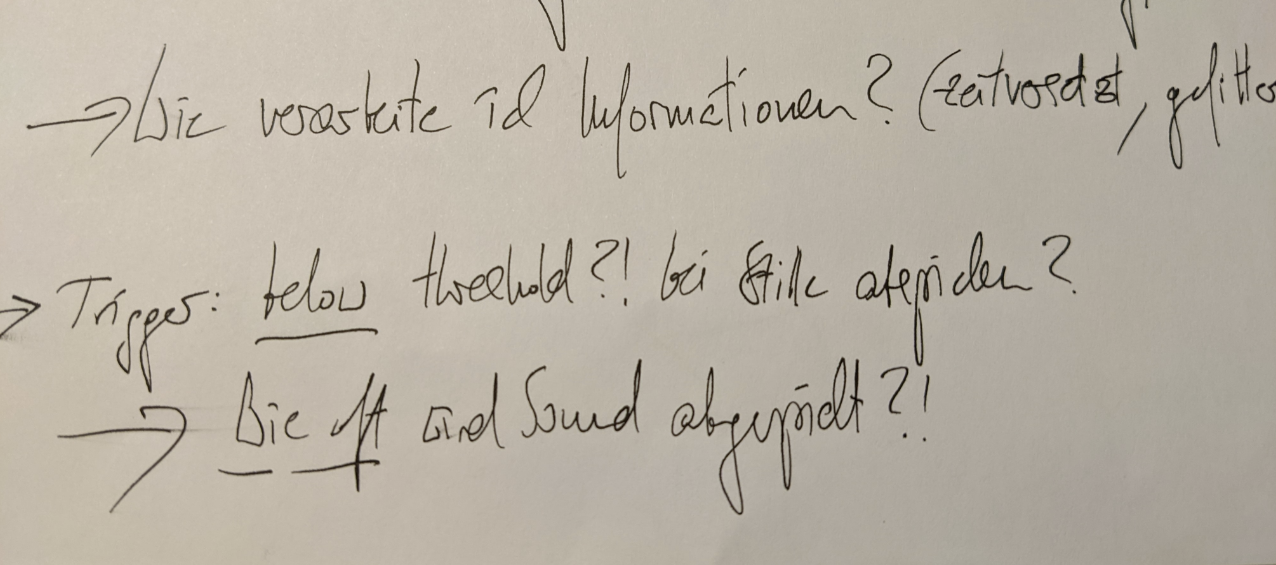 → Wie verarbeite ich Informationen? (zeitversetzt,
→ Trigger: below threshold?! bei Stille abspielen?
→ Wie oft wird Sound abgespielt?!